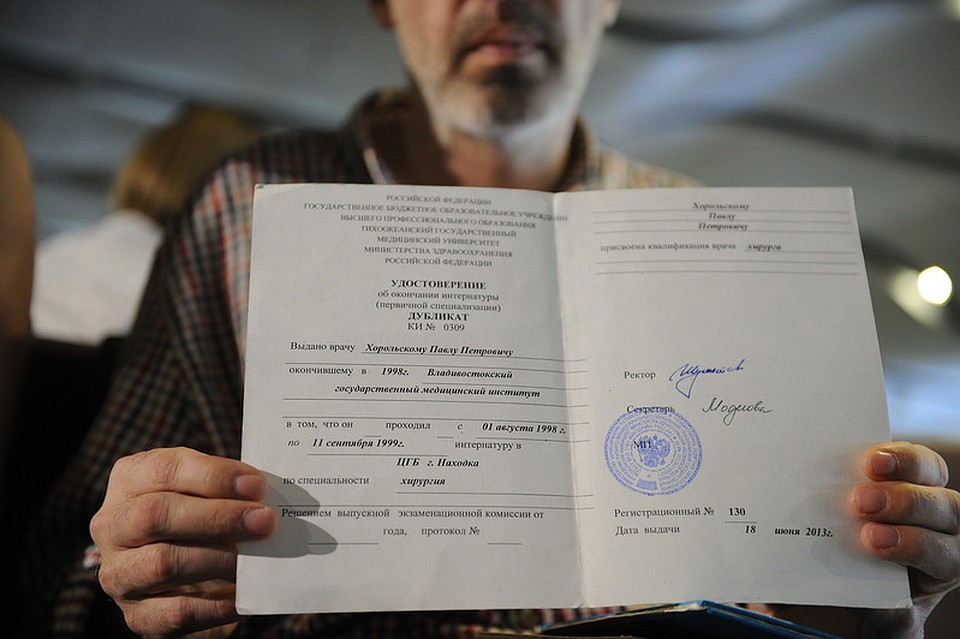 РОССИЙСКОЙ ФЕДЕРАЦИИ
ГОСУДАРСТВЕННОЕ БЮДЖЕТНОЕ ОБРАЗОВАТЕЛЬНОЕ УЧРЕЖДЕНИЕ
ВЫСШЕГО ПРОФЕССИОНАЛЬНОГО ОБРАЗОВАНИЯ
ТИХООКЕАНСКИЙ ГОСУДАРСТВЕННЫЙ
МЕДИЦИНСКИЙ УНИВЕРСИТЕТ
МИНИСТЕРСТВА ЗДРАВООХРАНЕНИЯ
РОССИЙСКОЙ ФЕДЕРАЦИИ
УДОСТОВЕРЕНИЕ
об окончании интернатуры
(первичной специализации)
ДУБЛИКАТ
КИ № 0309
Выдано врачу Хорольскому Павлу Петровичу
окончившему в 1998г. Владивостокский
государственный медицинский институт
в том, что он проходил с 01 августа 1998 г.
по 11 сентября 1999г. интернатуру в
ЦГБ г. Находка
по специальности хирургия
Решением выпускной экзаменационной комиссии от
года, протокол №
Хорольскому
Павлу
Петровичу
присвоена квалификация врача хирурга
Ректор
Секретарь
МП
Регистрационный № 130
Дата выдачи 18 июня 2013г.